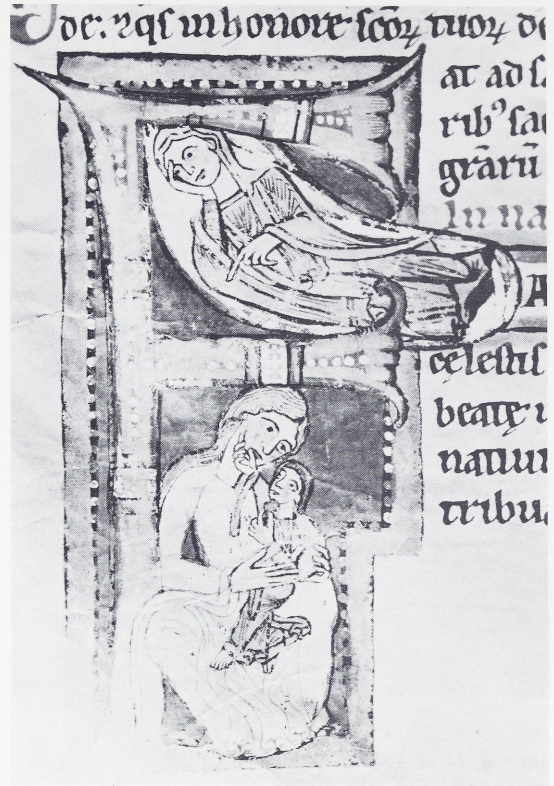 de: 7 qs in honore scoꝝ tuoꝝ de
at ad sa
ribꝰ sac
grārū
In na
A
cęlestis
beatę u
natiui
tribua